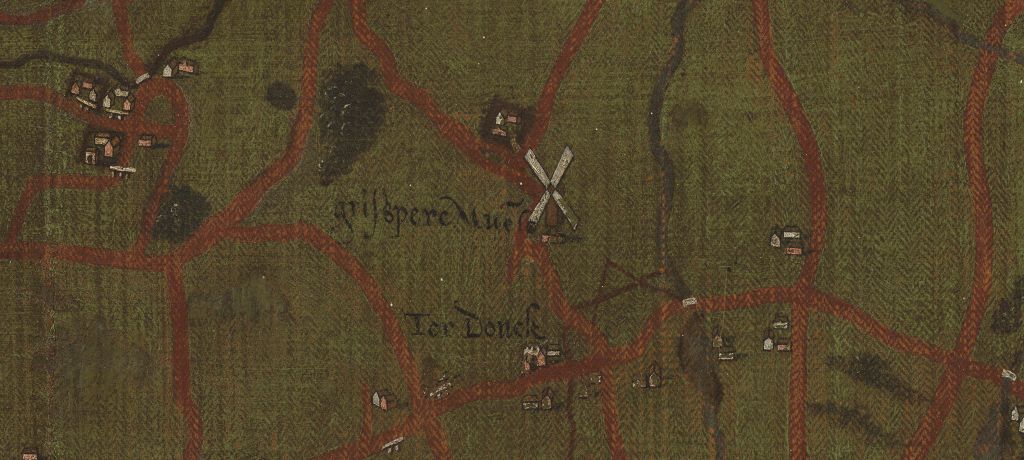 grijspere Mue͠le
Ter Donck